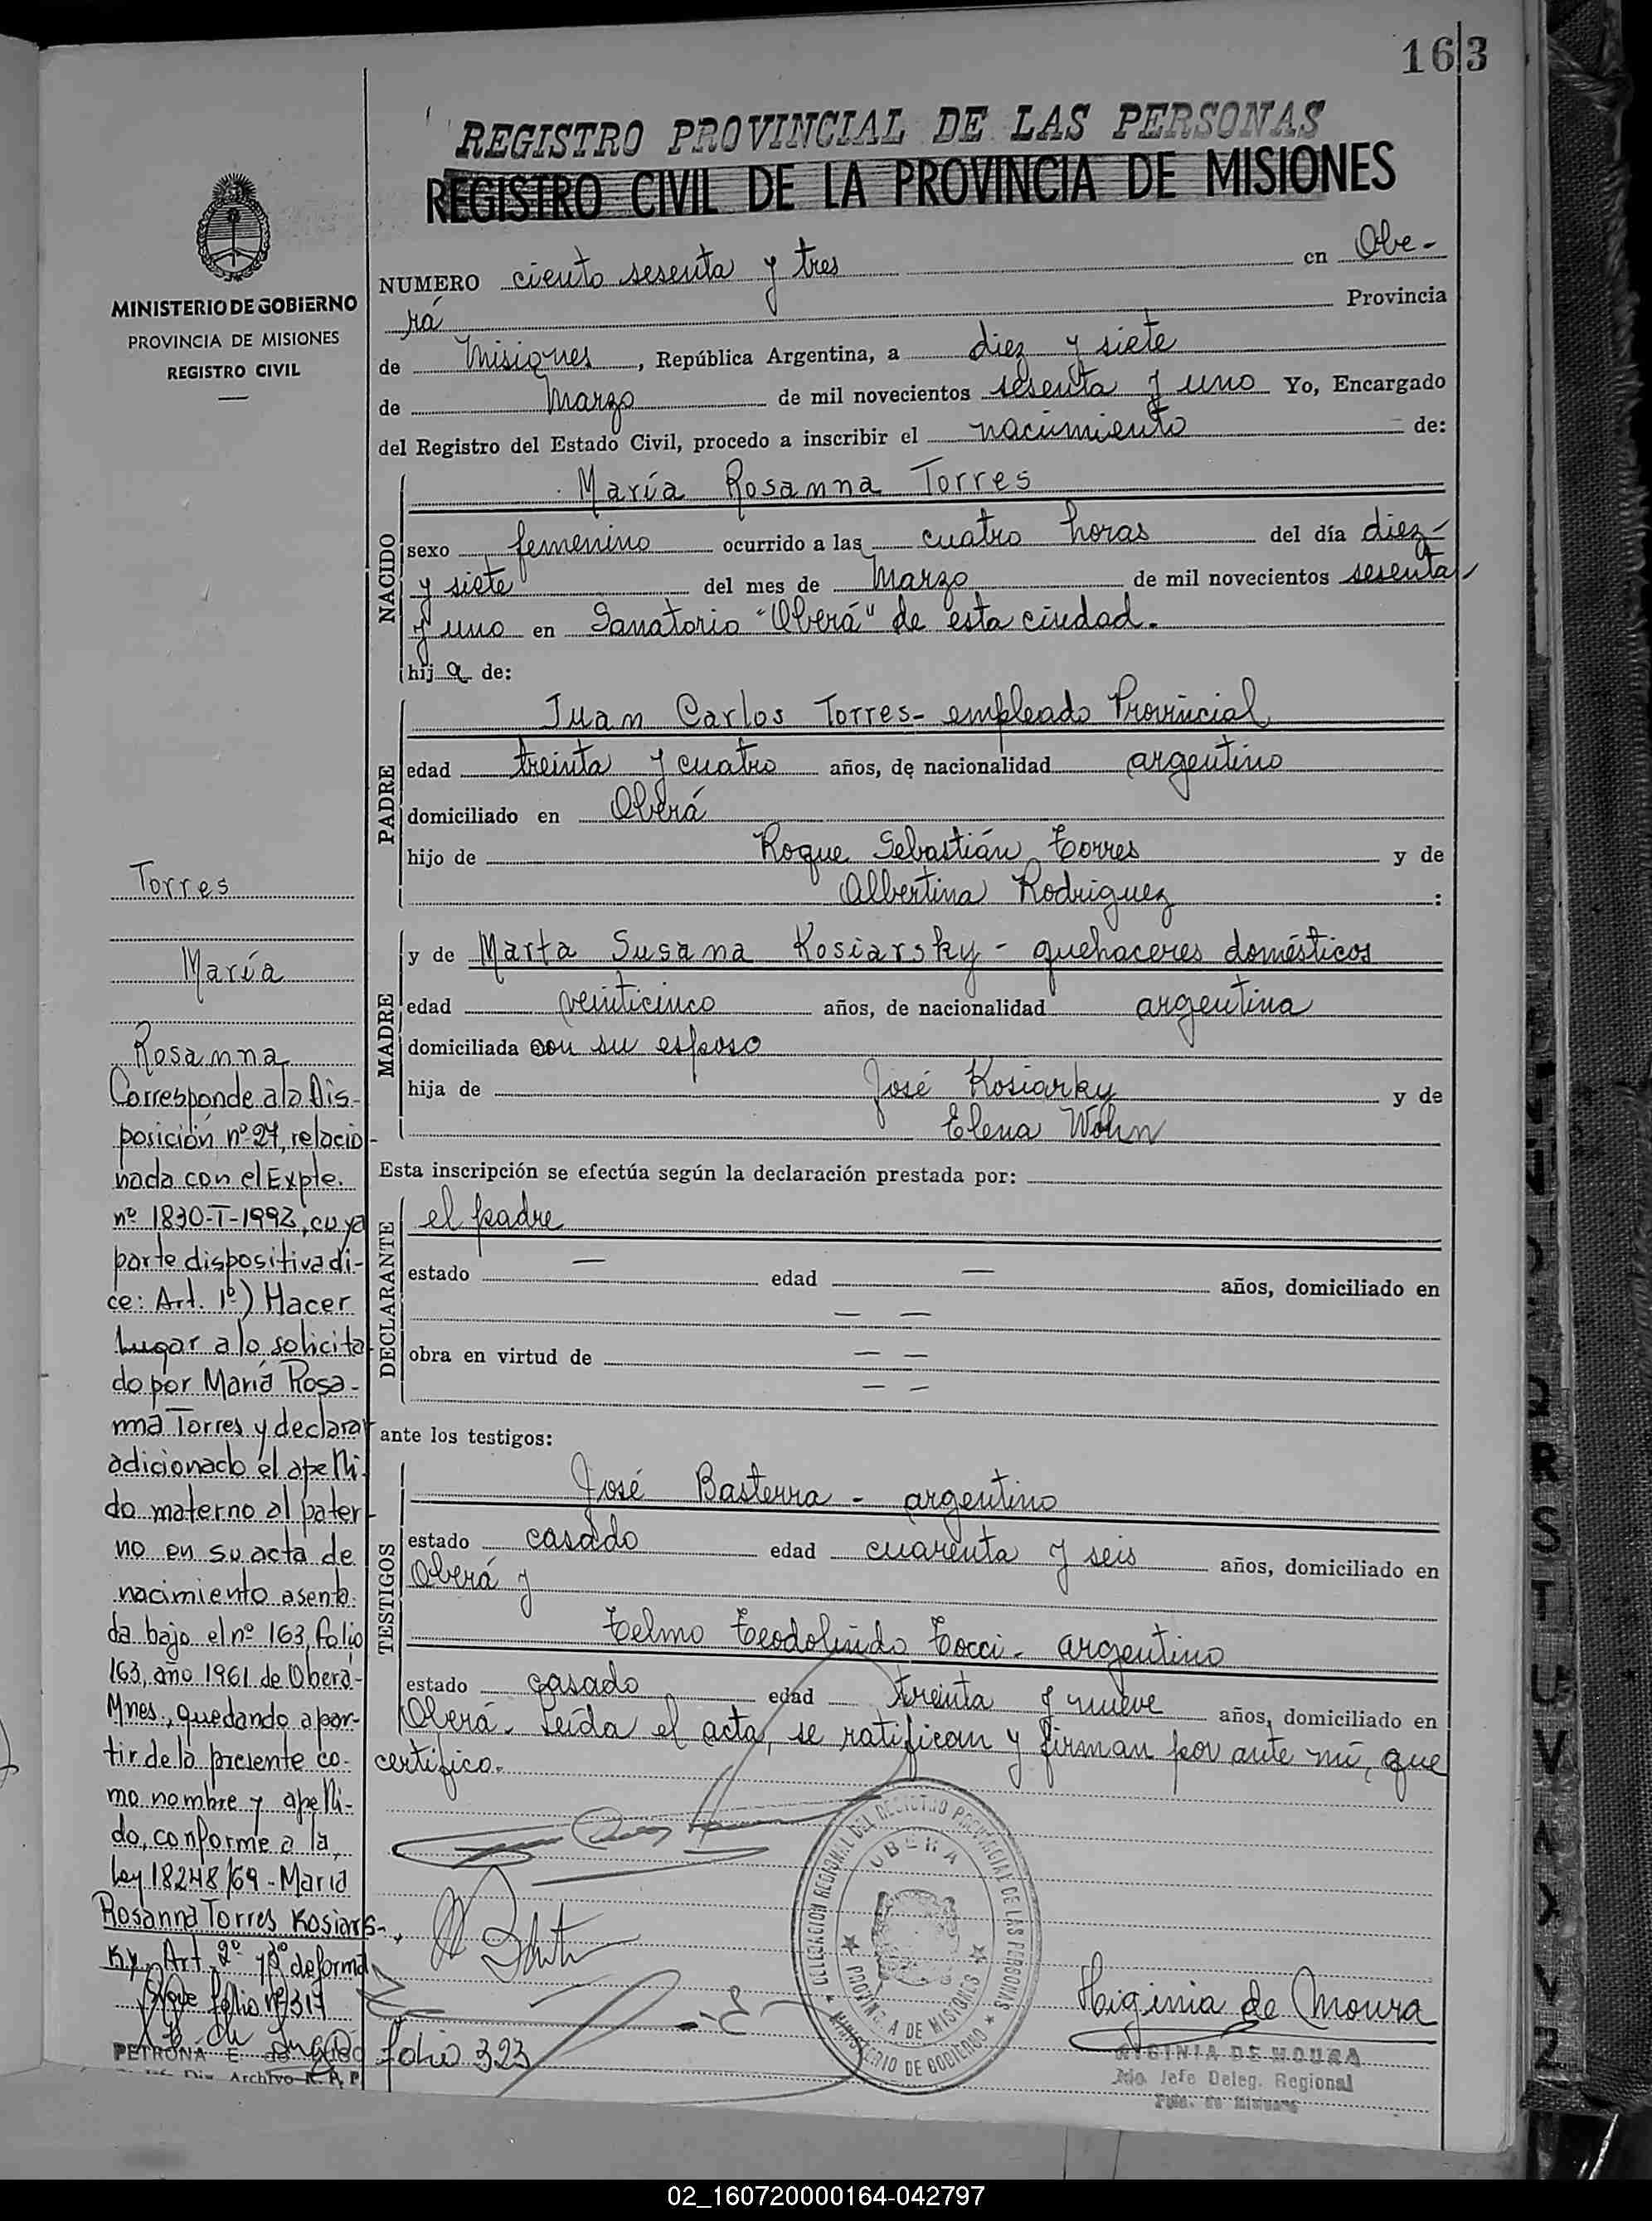 163
REGISTRO PROVINCIAL DE LAS PERSONAS
REGISTRO CIVIL DE LA PROVINCIA DE MISIONES
MINISTERIO DE GOBIERNO
PROVINCIA DE MISIONES
REGISTRO CIVIL
NUMERO ciento sesenta y tres en Obe-
rá Provincia
de Misiones, República Argentina, a diez y siete
de Marzo de mil novecientos sesenta y uno Yo, Encargado
del Registro del Estado Civil, procedo a inscribir el nacimiento de:
NACIDO
María Rosanna Torres
sexo femenino ocurrido a las cuatro horas del día diez
y siete del mes de Marzo de mil novecientos sesenta
y uno en Sanatorio "Oberá" de esta ciudad.
hija de:
PADRE
Juan Carlos Torres- empleado Provincial
edad treinta y cuatro años, de nacionalidad argentino
domiciliado en Oberá
hijo de Roque Sebastián Torres y de
Albertina Rodriguez :
MADRE
y de Marta Susana Kosiarsky - quehaceres domésticos
edad veinticinco años, de nacionalidad argentina
domiciliada con su esposo
hija de José Kosiarky y de
Elena Wohn
Esta inscripción se efectúa según la declaración prestada por:
DECLARANTE
el padre
estado — edad — años, domiciliado en
— —
obra en virtud de — —
— —
ante los testigos:
TESTIGOS
José Basterra - argentino
estado casado edad cuarenta y seis años, domiciliado en
Oberá y
Telmo Teodolindo Tocci- argentino
estado casado edad treinta y nueve años, domiciliado en
Oberá. Leída el acta, se ratifican y firman por ante mí, que
certifico.
Torres
María
Rosanna
Corresponde a la Dis-
posición nº 27, relacio-
nada con el Expte.
nº 1830-T-1992, cuya
parte dispositiva di-
ce: Art. 1º) Hacer
Lugar a lo solicita
do por María Rosa-
nna Torres y declarar
adicionado el apelli-
do materno al pater-
no en su acta de
nacimiento asenta-
da bajo el nº 163, folio
163, año 1961 de Oberá-
Mnes., quedando a par-
tir de la presente co-
mo nombre y apelli-
do, conforme a la
Ley 18248/69 - María
Rosanna Torres Kosiars-
ky. Art. 2º y 3º de forma
folio nº 317
folio 323
PETRONA E.
Archivo R. P. P.
DELEGACION REGIONAL DEL REGISTRO PROVINCIAL DE LAS PERSONAS
MINISTERIO DE GOBIERNO
OBERA
PROVINCIA DE MISIONES
Higinia de Moura
HIGINIA DE MOURA
Jefe Deleg. Regional
R
S
T
U
V
X
Y
Z
02_160720000164-042797